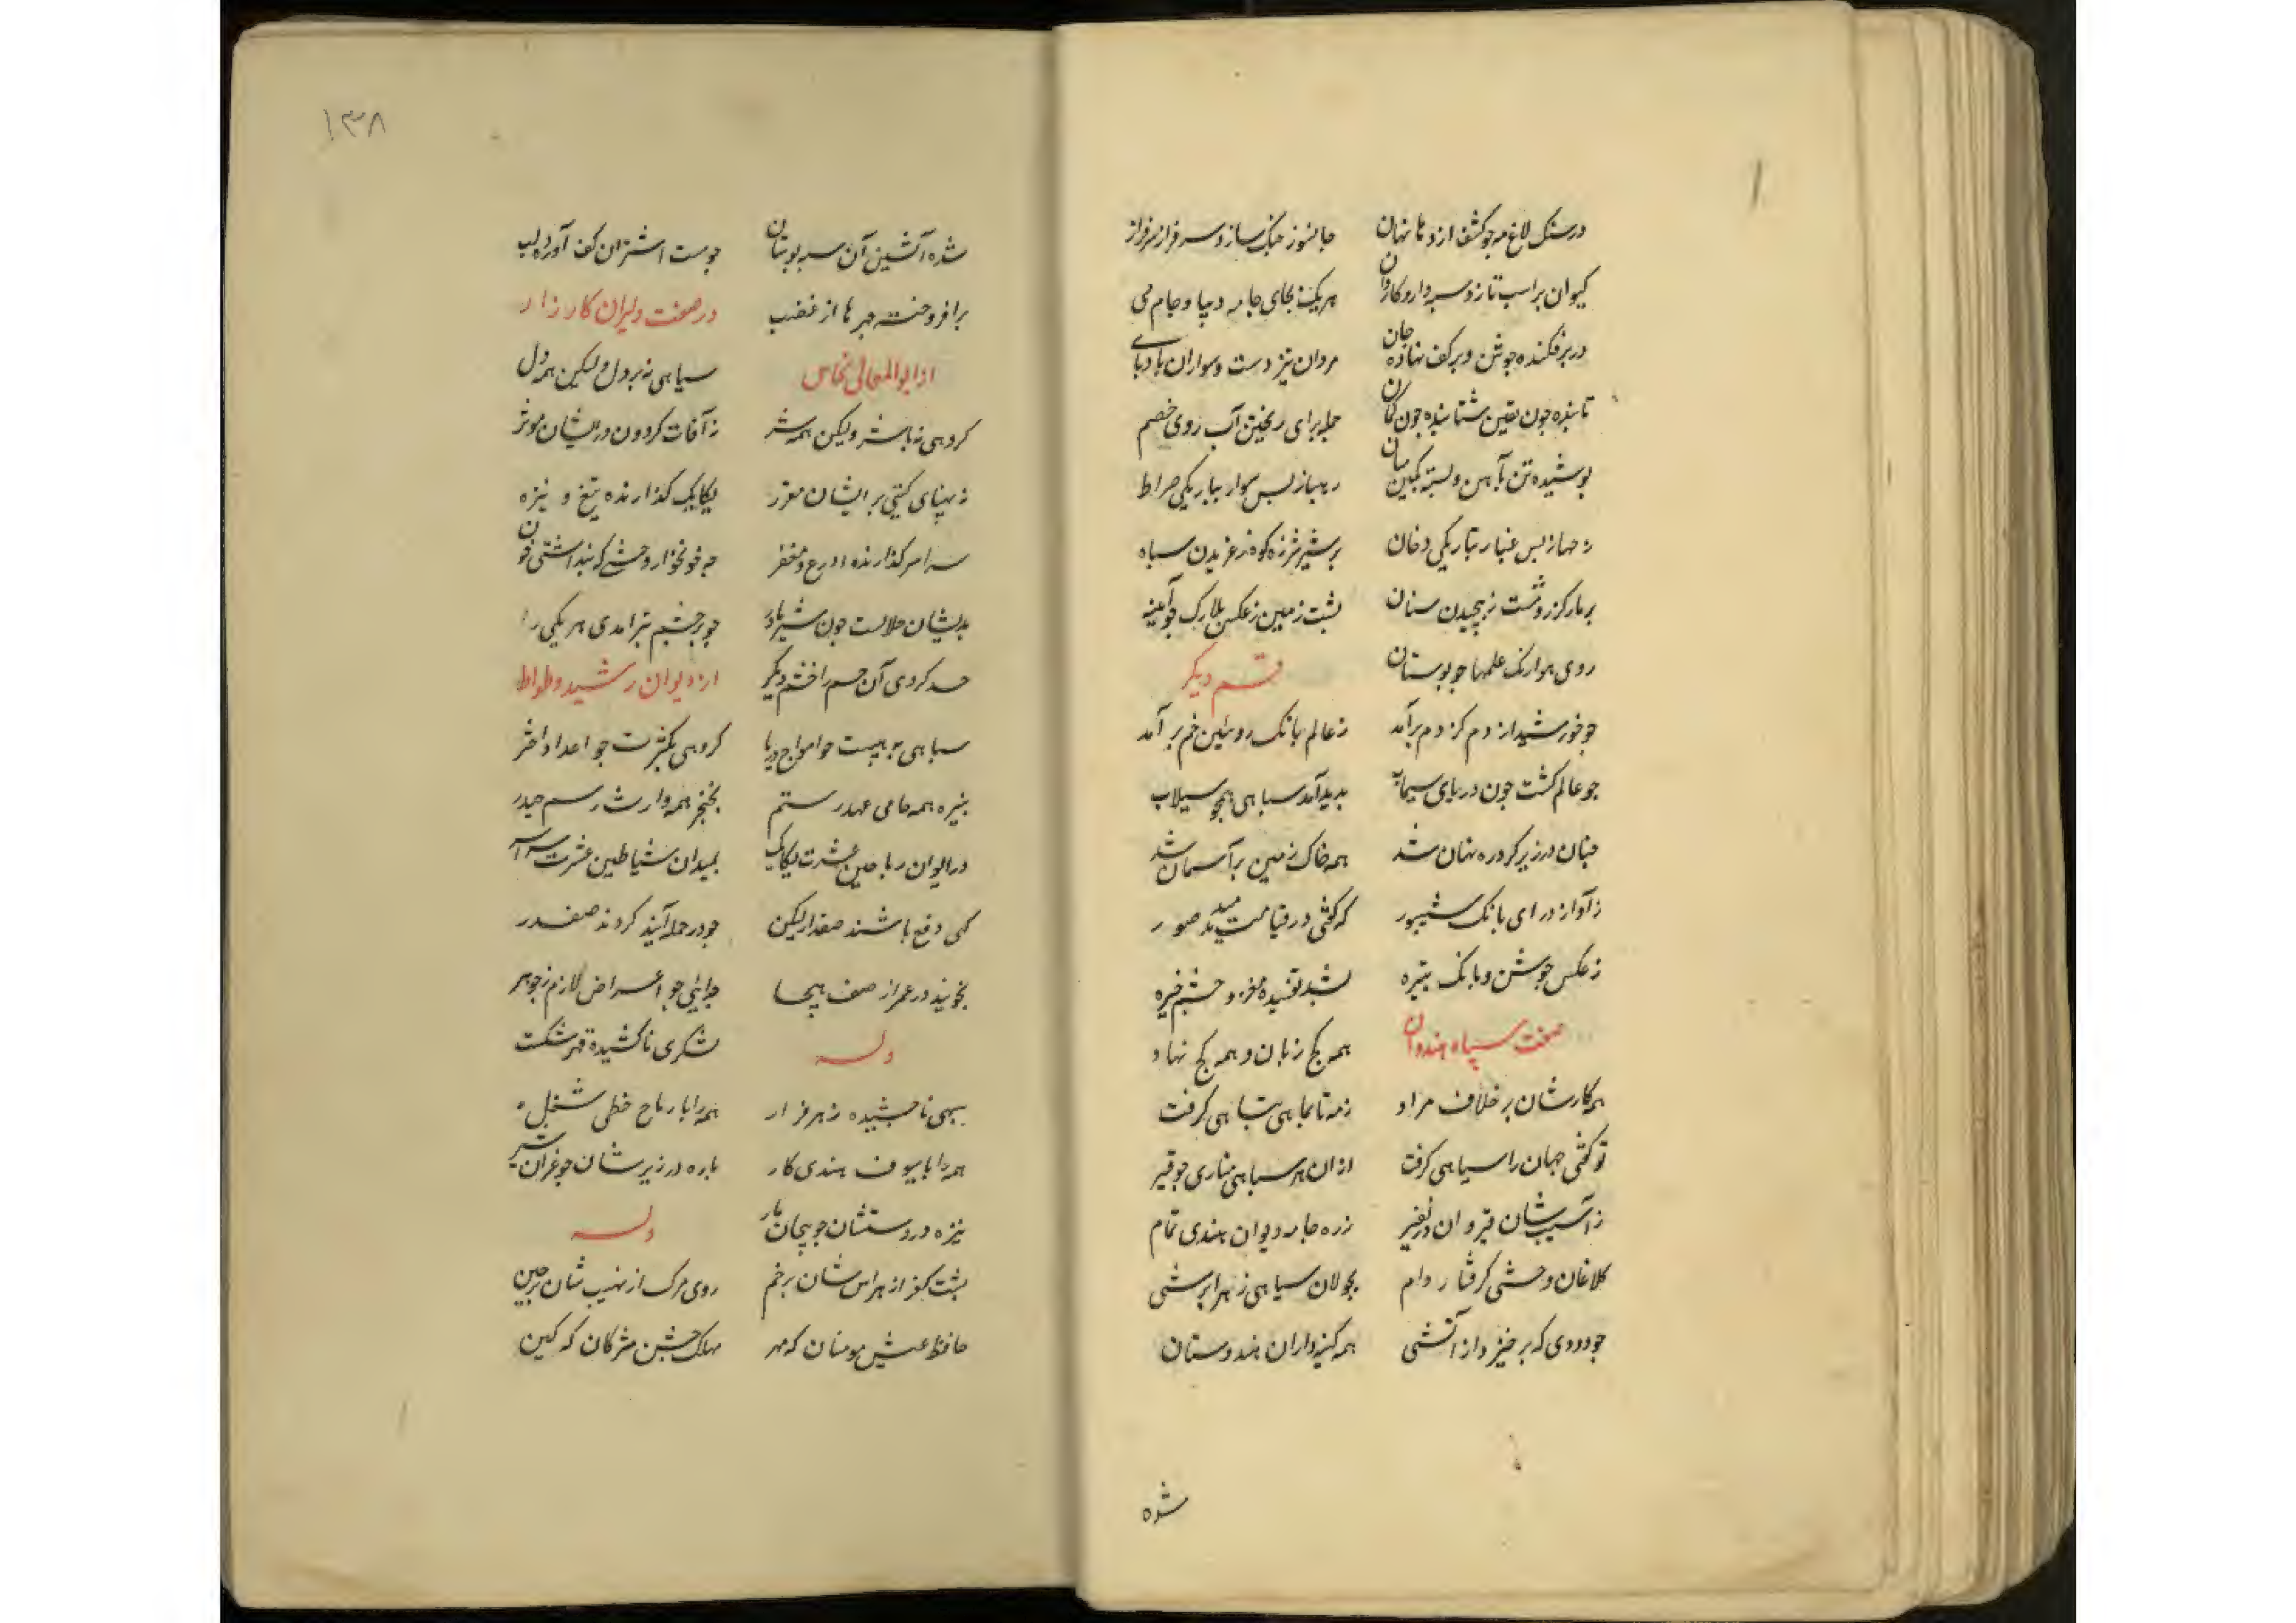 در سنک لاغ مه جو کشف اژدها نهان جانسوز جنک ساز و سرافراز سرفراز
کیوان بر اسب تازد و سردار و کاروان هریک بجای جامه دیبا و جام می
در بر فکنده جوشن و بر کف نهاده جان مردان تیز دست و سواران بادپای
تابنده جون یقین شتابنده جون کمان جمله برای ریختن آب روی خصم
بوشیده تن بآهن و بسته کمین میان ره باز بس سوار بباریکی صراط
بس غبار بتاریکی دخان بر شیر شرزه کوه ز غریدن سباه
بر مار کرزه دشت ز بیجیدن سنان بشت زمین ز عکس بلارک جو آینه
روی هوا رنک علمها جو بوستان قسم دیکر
جو خورشید از دم کژدم برآمد ز عالم بانک روئین خم بر آمد
جو عالم کشت جون دریای سیماب بدید آمد سباهی همجو سیلاب
جنان در زیر کرد ره نهان شد همه خاک زمین بر آسمان شد
ز آواز درای بانک شیبور که کفتی در قیامت میدمد صور
ز عکس جوشن و بانک تبیره بشد تفسیده مغز و جشم خیره
صفت سپاه هندوان همه کج زبان و همه کج نهاد
همه کارشان بر خلاف مراد ز مه تا بماهی تباهی کرفت
تو کفتی جهان را سیاهی کرفت از ان هر سباهی مناری جو قیر
ز آسیبشان قیروان در نفیر زره جامه دیوان هندی تمام
کلاغان وحشی کرفتار دام بجولان سیاهی ز هر ابرشی
جو دودی که بر خیزد از آتشی همه کینه داران هندوستان
شده
۱۳۸
شده آتشین آن سر بوستان جو مست اشتران کف آورده بلب
بر افروخته جهرها از غضب در صفت دلیران کارزار
از ابوالمعالی نحاس سباهی نه بر دل ولیکن همه دل
کروهی نه با شر ولیکن همه شر ز آفات کردون در یشان موثر
ز بهنای کیتی بر ایشان مقرر یکایک کذارنده تیغ و نیزه
سراسر کذارنده درع و مغفر جو خونخوار وحشی که بنداشتی خون
بدیشان حلالست جون شیر مادر جو بر جشم تیر آمدی هر یکی را
حسد کردی آن جسم را خشم دیکر از دیوان رشید وطواط
سباهی به هیبت جو امواج دریا کروهی بکثرت جو اعداد اختر
بنیزه همه حامی عهد رستم بخنجر همه وارث رسم حیدر
در ایوان ریاحین عشرت یکایک بمیدان شیاطین عشرت سراسر
کهی دفع باشند صفدار لیکن جو در حمله آیند کردند صفدر
نجویند در عمر از صف هیجا جدایی جو اعراض لازم ز جوهر
وله لشکری ناکشیده قهر شکست
سبهی ناجشیده زهر فرار همه را با رماح خطی شغل
همه را با سیوف هندی کار باره در زیرشان جو غران شیر
نیزه در دستشان جو بیجان مار وله
بشت کفر از هراس شان بر خم روی مرک از نهیب شان بر جین
حافظ عیش مومنان که مهر مهلک جیش مشرکان که کین